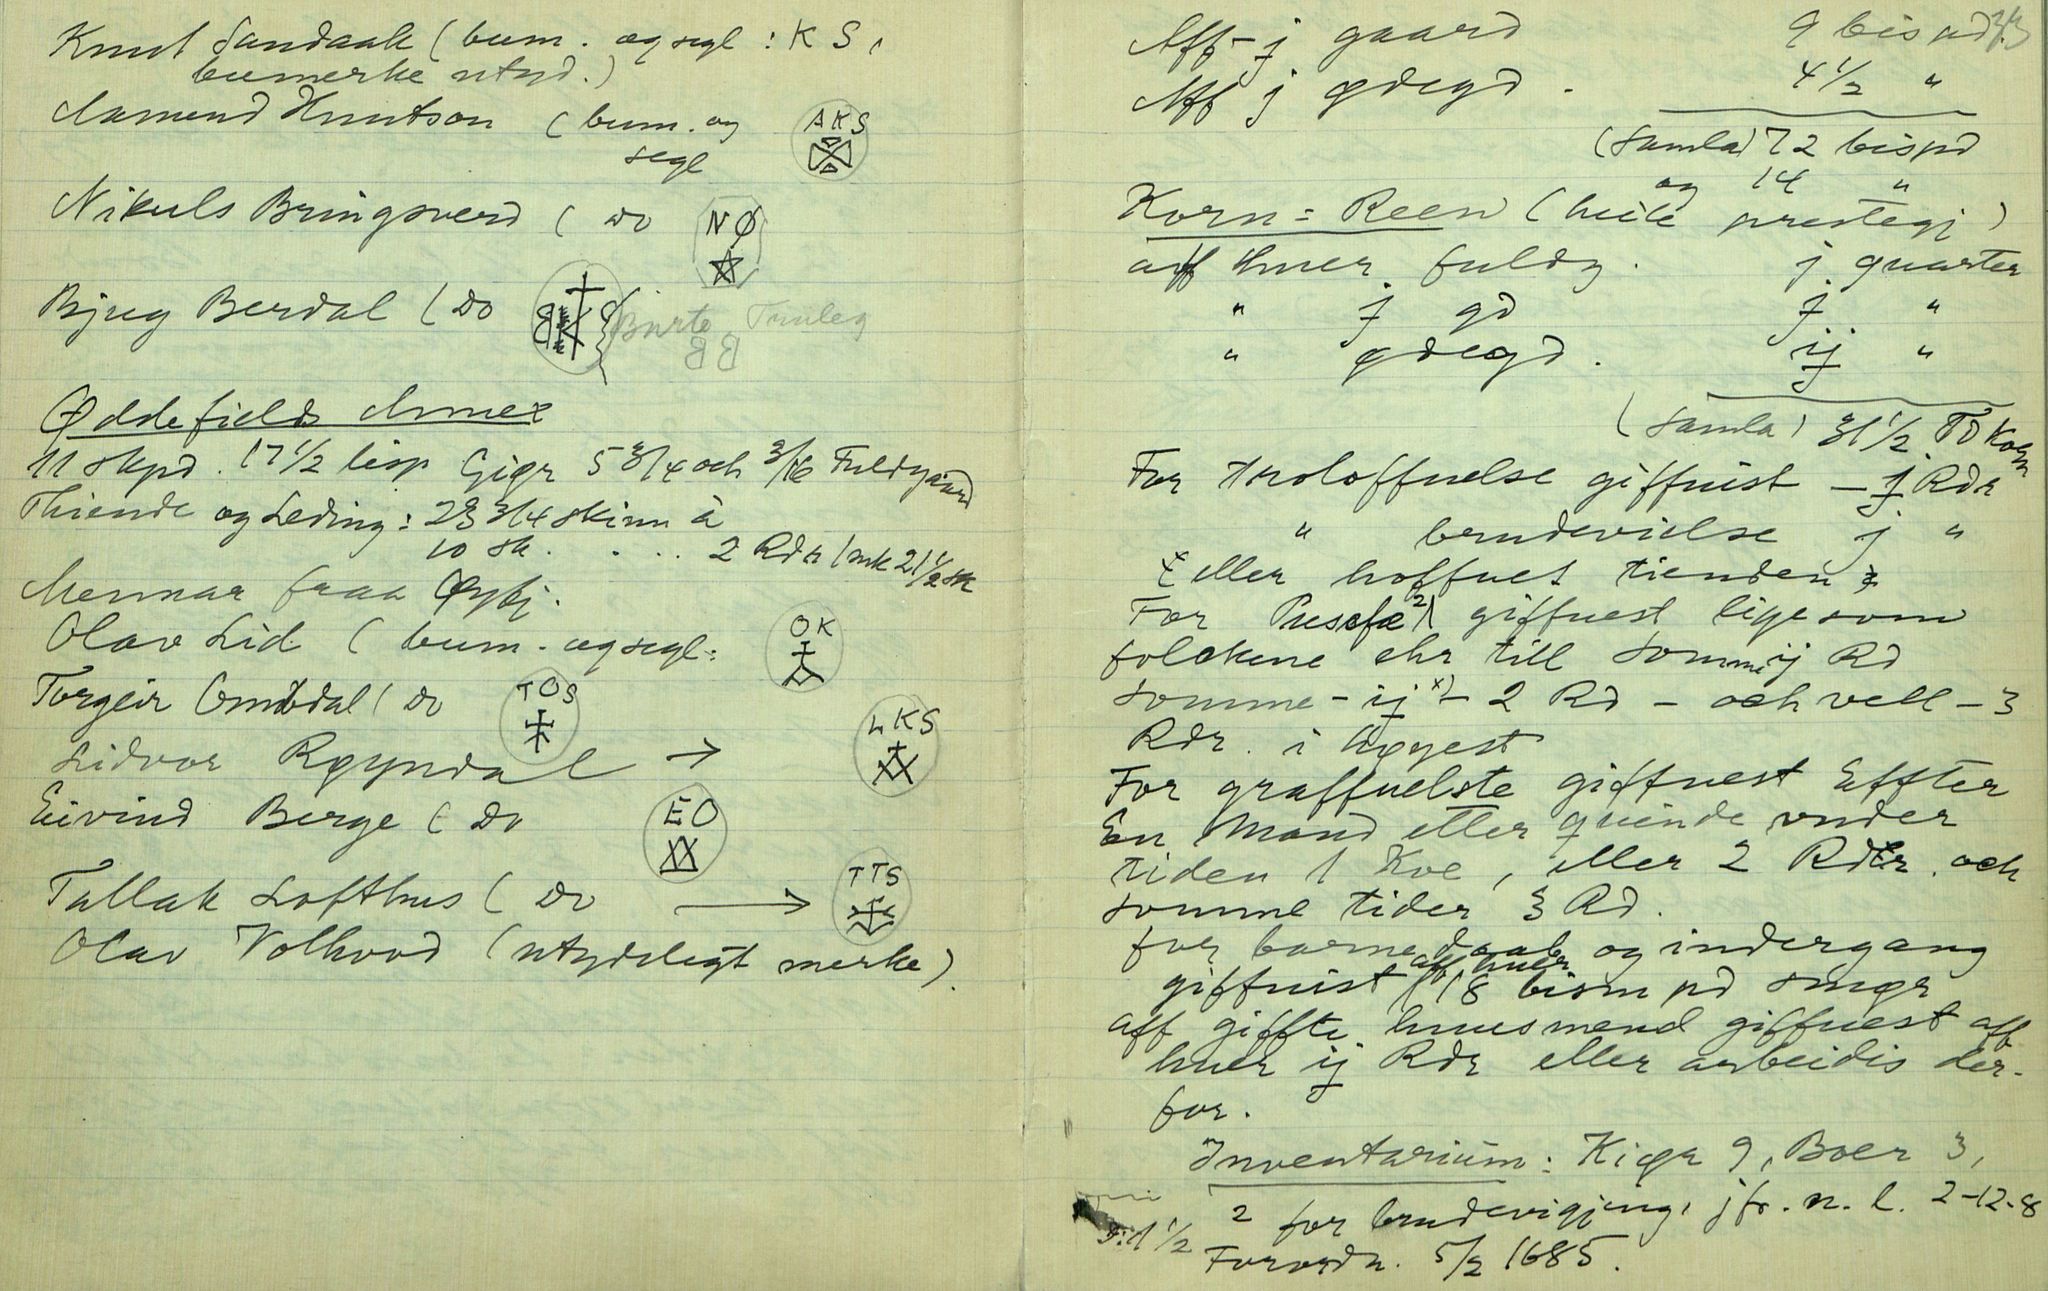 Knut Sandaak (bum. og segl: K S,
bumerke utyd.)
Aamund Knutson (bum. og
segl
AKS
Nikuls Bringsverd (Do
NØ
Bjug Berdal (Do
BB
Øddefields Annex
11 skpd. 17 1/2 lisp Gigr 5 3/4 och 3/16 Fuldgaard
Thiende og Leding: 23 3/4 skinn à
10 sk. . . . 2 Rdr 1 mk 21 1/2 sk
Mennar fraa Øyfj.
Olav Lid (bum. og segl:
OK
Torgeir Omdal (Do
TOS
Lidvor Røyndal →
LKS
Eivind Berge (Do
EO
Tallak Lofthus (Do →
TTS
Olav Volhovd (utydeligt merke).
Aff j gaard 9 bispd.
Aff j ødegd. 4 1/2 "
(Samla) 72 bispd
og 14 "
Korn = Reen (heile prestegj)
aff huer fuldg. j quarter
" j gd j "
" ødegd. ij "
(Samla) 31 1/2 Td Korn
For troloffuelse giffuist – j Rdr
" brudevielse j "
eller hoffuet tienden
For giffuest lige som
folckene ehr till somme ij Rd
somme – ij x) – 2 Rd – och vell – 3
Rdr. i høyest
For graffuelste giffuest Effter
En Mand eller quinde vnder
tiden 1 Koe, eller 2 Rdr. och
somme tider 3 Rd.
for barnedaab og indergang
giffuist aff huer 18 bism pd smør
aff giffte huusmend giffuest aff
huer ij Rdr eller arbeidis der-
for.
Inventarium: Kiør 9, Boer 3,
2 for brudevigjing, jfr. n. l. 2-12-8
Forordn. 5/2 1685.
ɔ: 1 1/2